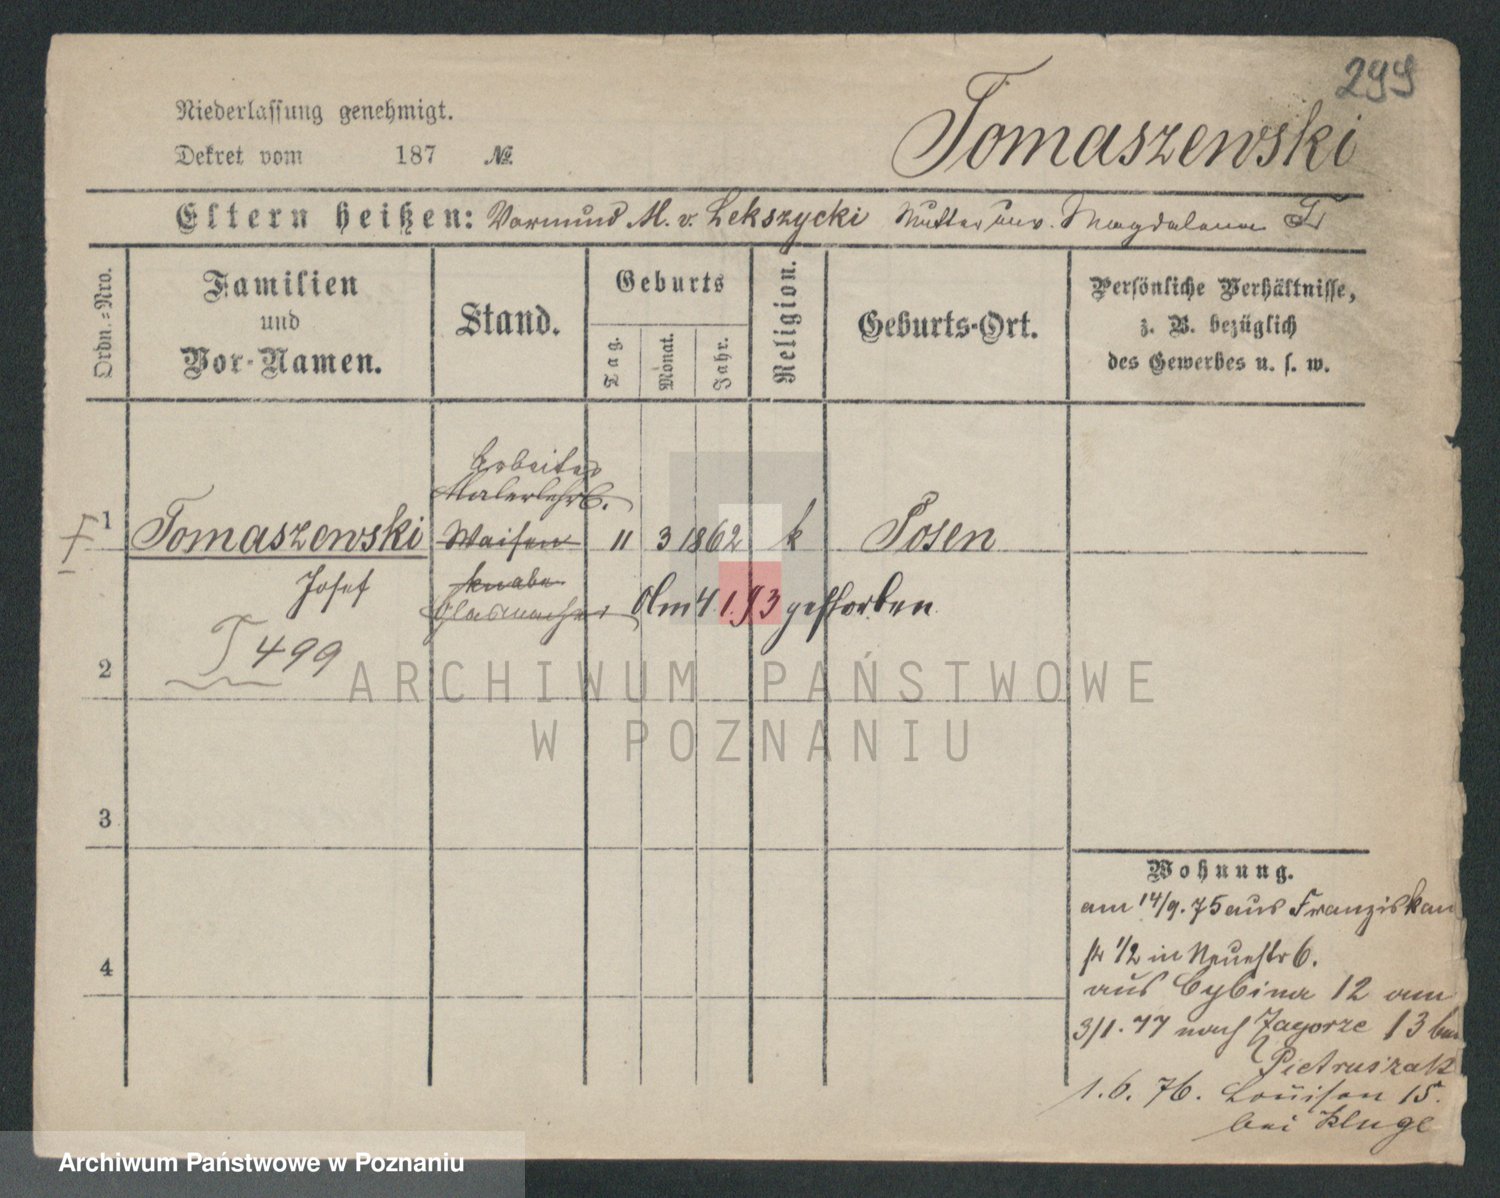 299
Niederlassung genehmigt.
Dekret vom 187 №
Tomaszewski
Eltern heißen: Vormund M. v. Lekszycki Mutter unv. Magdalena T
Ordn.=Nro.
Familien
und
Vor-Namen.
Stand.
Geburts
Tag.
Monat.
Jahr.
Religion.
Geburts-Ort.
Persönliche Verhältnisse,
z. B. bezüglich
des Gewerbes u. s. w.
Arbeiter
Malerlehrl.
1 Tomaszewski Waisen 11 3 1862 k Posen
Josef knabe
Glasmacher Am 4.1.93 gestorben
T 499
2
3
4
Wohnung.
am 14/9.75 aus Franziskan
str 1/2 in Neuestr 6.
aus Cybina 12 am
3/1.77 nach Zagorze 13 bei
Pietruszak
1.6.76. Louisen 15.
bei Kluge
ARCHIWUM PAŃSTWOWE
W POZNANIU
Archiwum Państwowe w Poznaniu